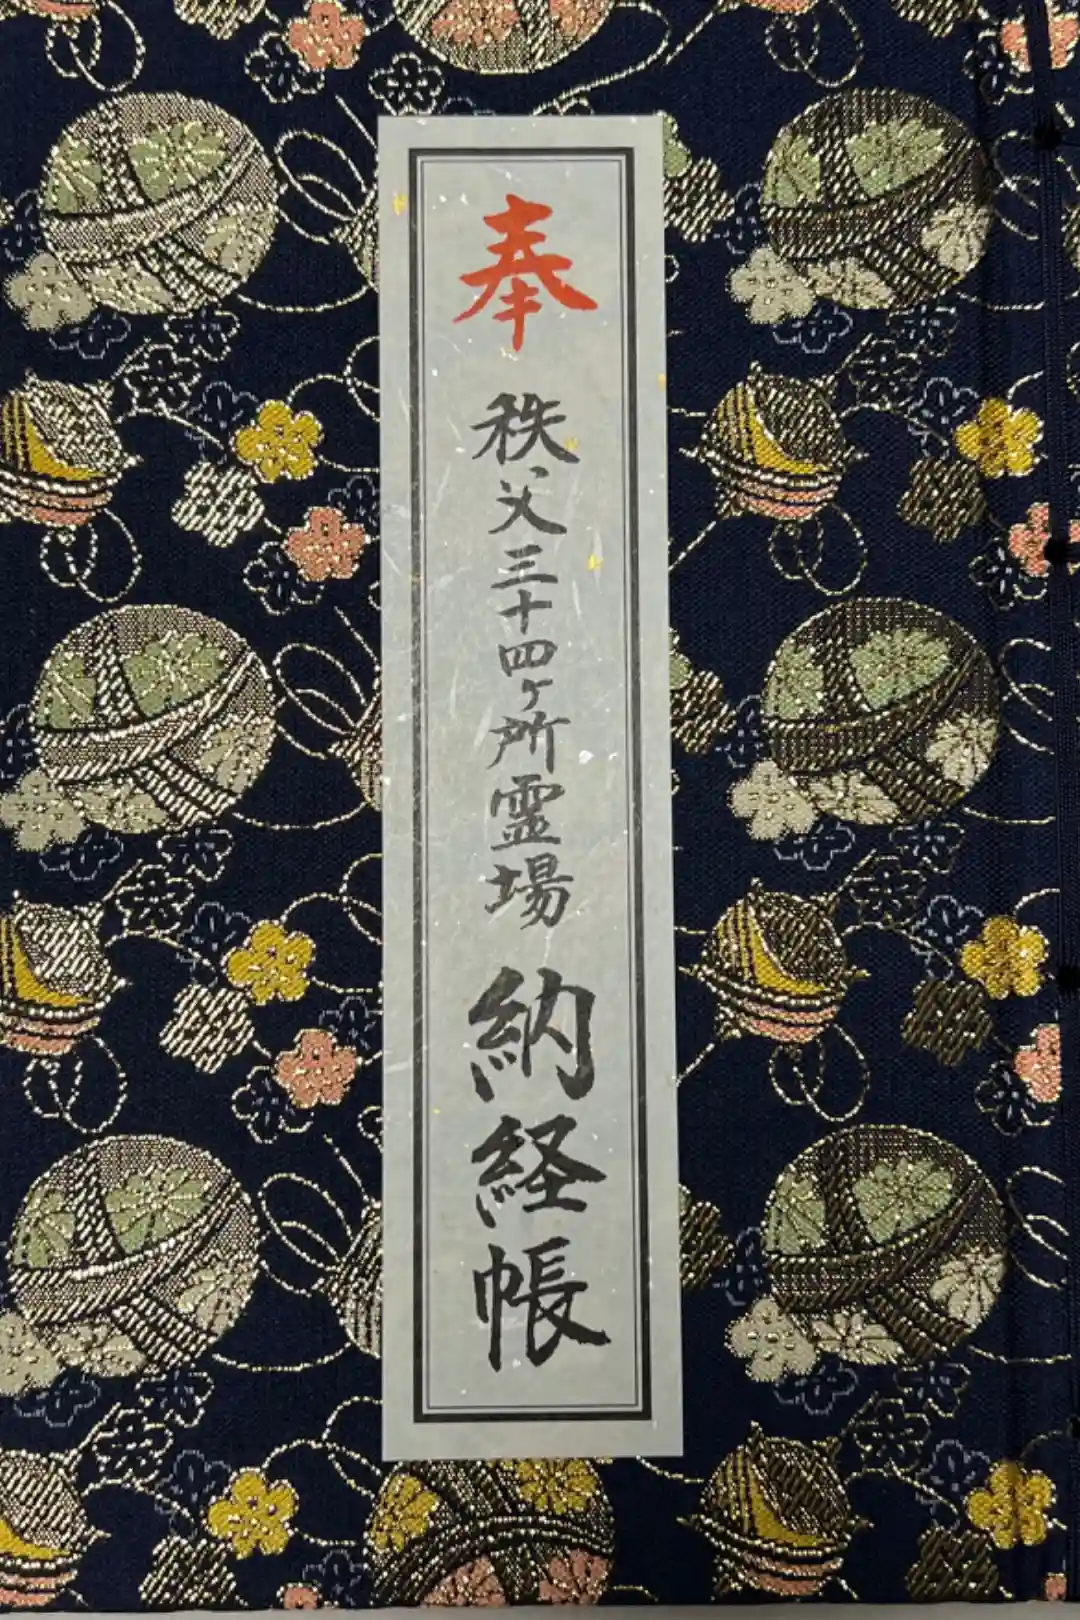 奉 秩父三十四ヶ所霊場 納経帳